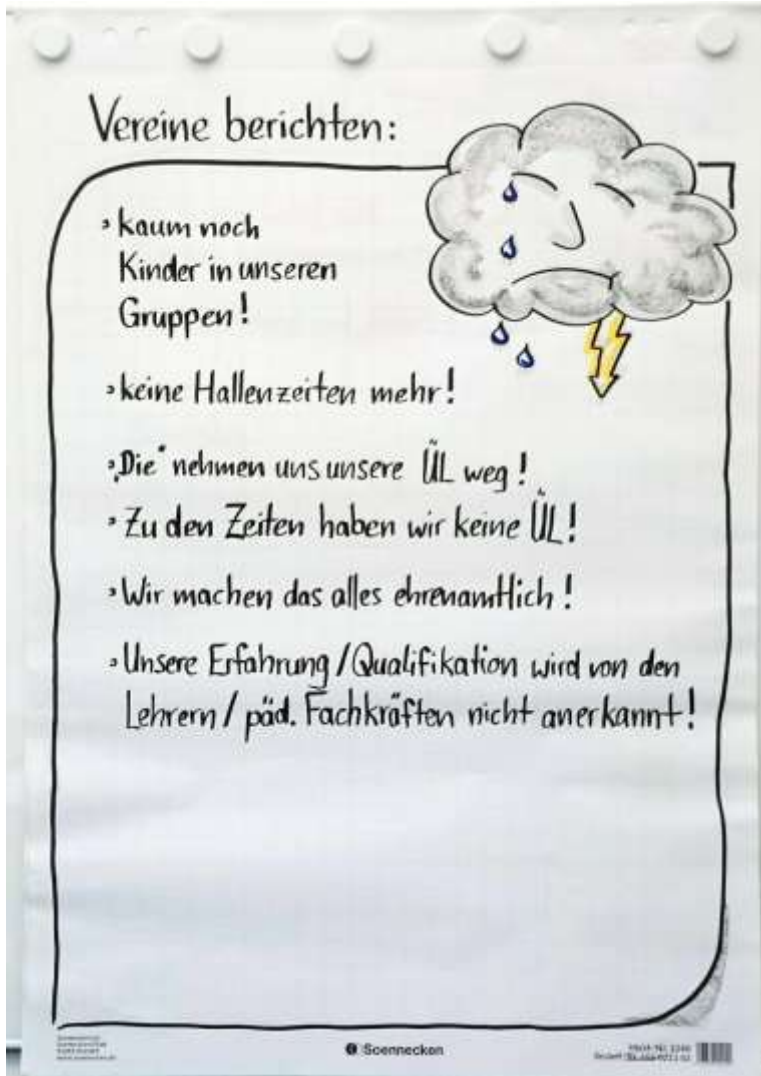 Vereine berichten:
› kaum noch
Kinder in unseren
Gruppen!
› keine Hallenzeiten mehr!
› „Die" nehmen uns unsere ÜL weg!
› Zu den Zeiten haben wir keine ÜL!
› Wir machen das alles ehrenamtlich!
› Unsere Erfahrung / Qualifikation wird von den
Lehrern / päd. Fachkräften nicht anerkannt!
Soennecken